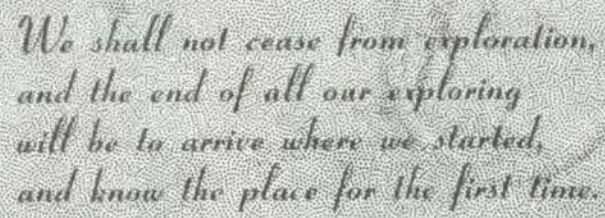 We shall not cease from exploration,
and the end of all our exploring
will be to arrive where we started,
and know the place for the first time.